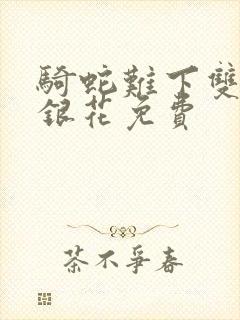 騎蛇難下雙
銀花免費
茶不爭春